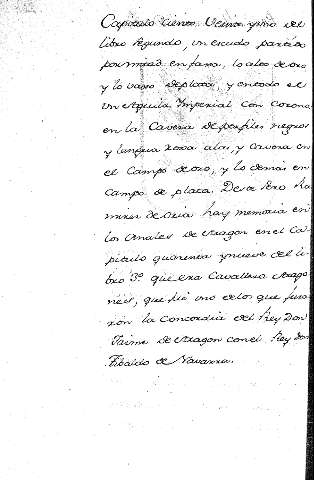 Capitulo ciento Veinte y uno del
libro segundo, un escudo partido
por mitad en faxa, lo alto de oro
y lo vaxo de plata, y en todo el
un Aguila Imperial con corona
en la Caveza de perfiles negros
y lengua roxa alas, y Caveza en
el Campo de oro, y lo demas en
Campo de plata. De se Pero
hay memoria en
los Anales de Aragon en el Ca-
pitulo quarenta y nueve del li-
bro 3º. que era Cavallero Arago-
nés, que fué uno de los que fura-
ron la Concordia del Rey Don
Jaime de Aragon con el Rey Don
Tibaldo de Navarra.